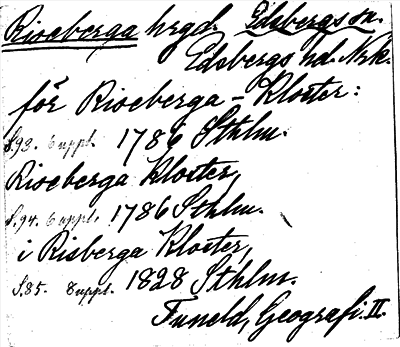 Riseberga hrgd. Edsbergs sn.
Edsbergs hd. Nrk.
för Riseberga-Kloster:
S.93. 6 uppl. 1786 Sthlm.
Riseberga Kloster,
S.94. 6 uppl. 1786 Sthlm.
i Risberga Kloster,
S.85. 8 uppl. 1828 Sthlm.
Tuneld, Geografi. II.